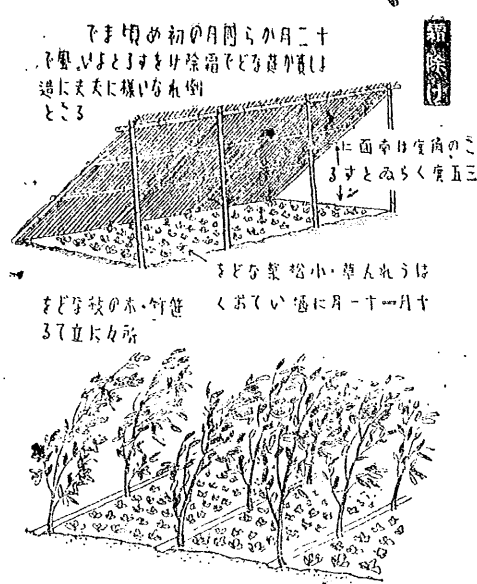 霜除け
十二月から四月の初め頃まで
よし簀か莚などで霜除けをするとよい、風で
倒れない様に丈夫に造
ること
この角度は南面に
三五度くらゐとする
はうれん草・小松菜などを
十月―十一月に播いておく
笹竹・木の枝などを
所々に立てる